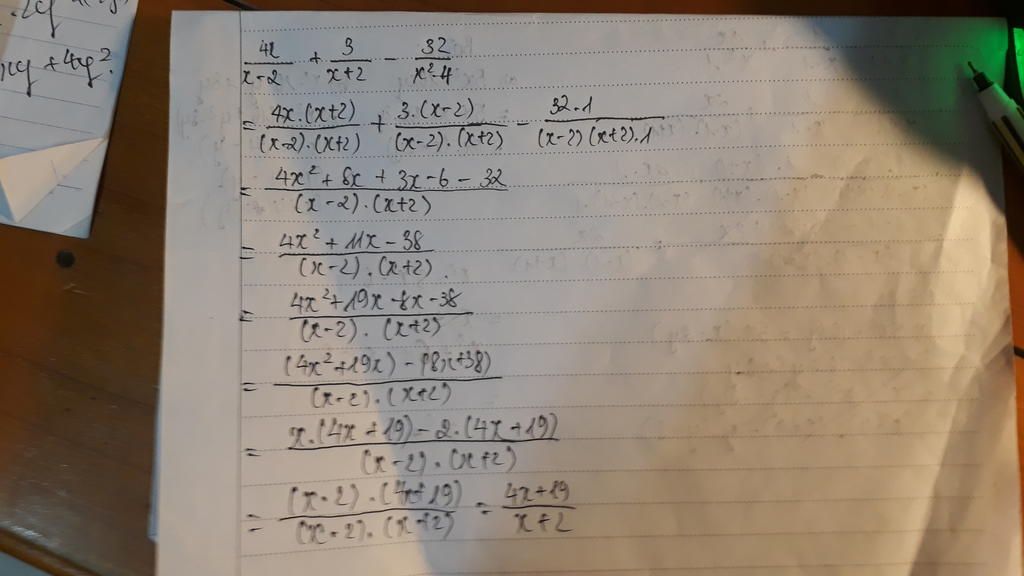 xy + 4y².
4x/(x-2) + 3/(x+2) - 32/(x²-4)
= 4x.(x+2)/(x-2).(x+2) + 3.(x-2)/(x-2).(x+2) - 32.1/(x-2)(x+2).1
= (4x² + 8x + 3x - 6 - 32)/(x-2).(x+2)
= (4x² + 11x - 38)/(x-2).(x+2).
= (4x² + 19x - 8x - 38)/(x-2).(x+2)
= ((4x² + 19x) - (8x + 38))/(x-2).(x+2)
= (x.(4x + 19) - 2.(4x + 19))/(x-2).(x+2)
= (x-2).(4x+19)/(x-2).(x+2) = (4x+19)/(x+2)